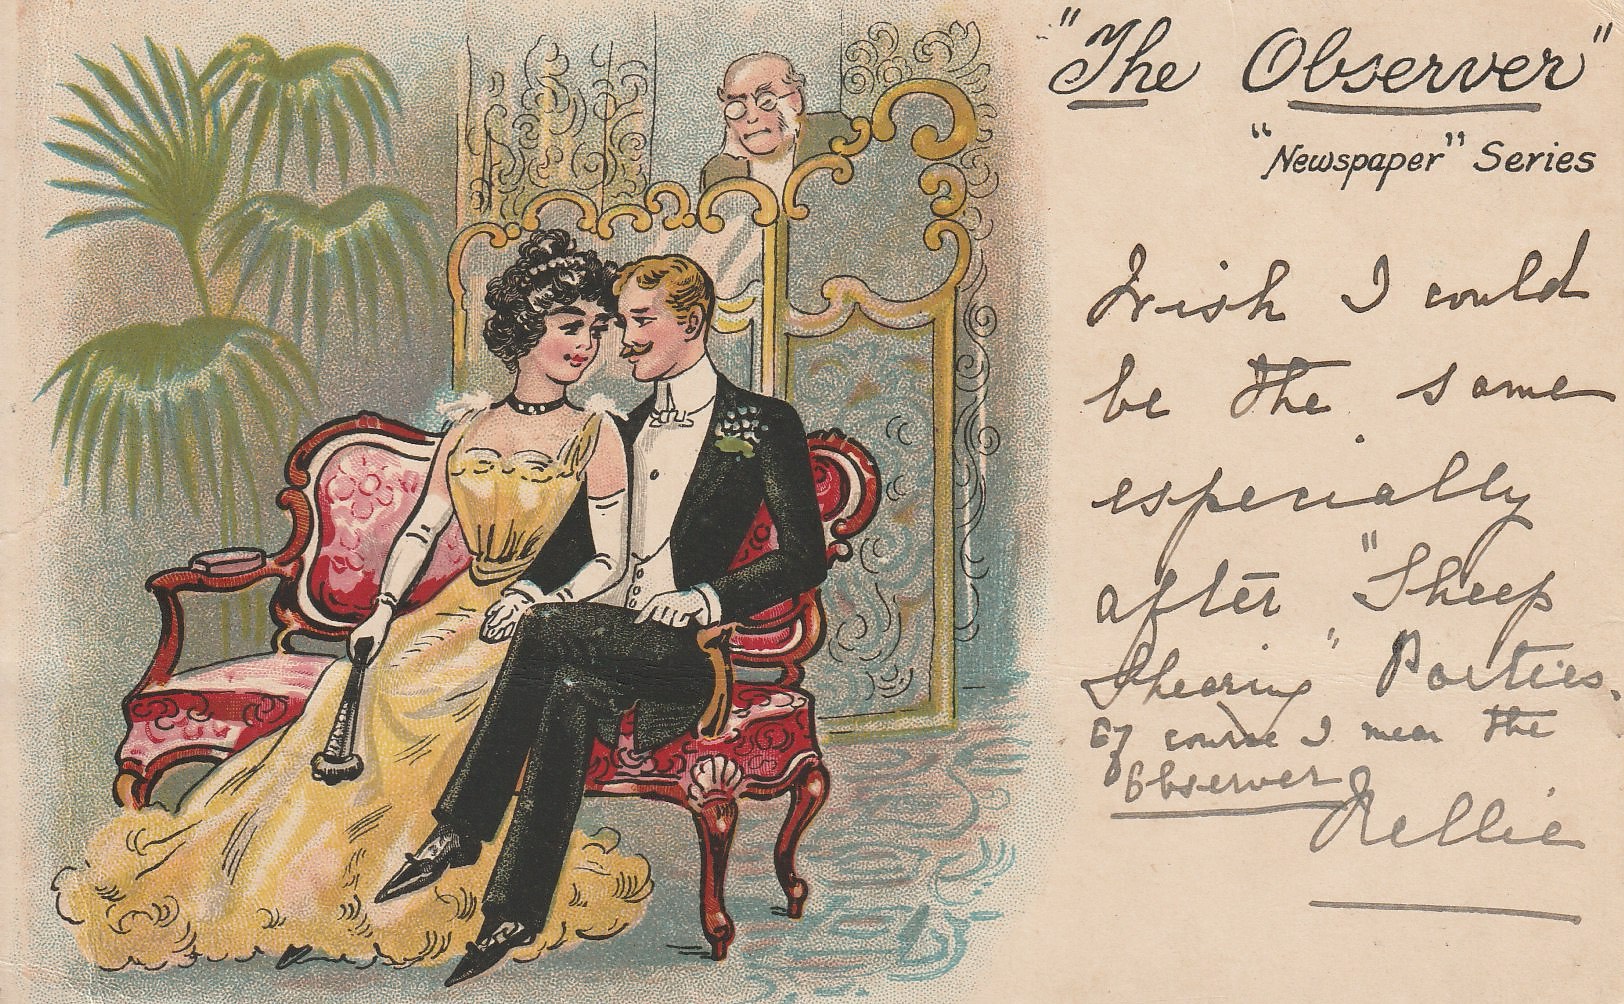 "The Observer"
"Newspaper" Series
Wish I could
be the same
especially
after "Sheep
Shearing" Parties.
Of course I mean the
Observer
Nellie